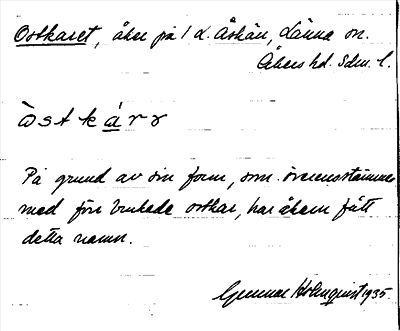 Ostkaret, åker på 1 d. Åskäu, Länna sn.
Åkers hd. Sdm. l.
òstkárə
På grund av sin form, som överensstämmer
med förr brukade ostkar, har åkern fått
detta namn.
Gunnar Holmquist 1935.